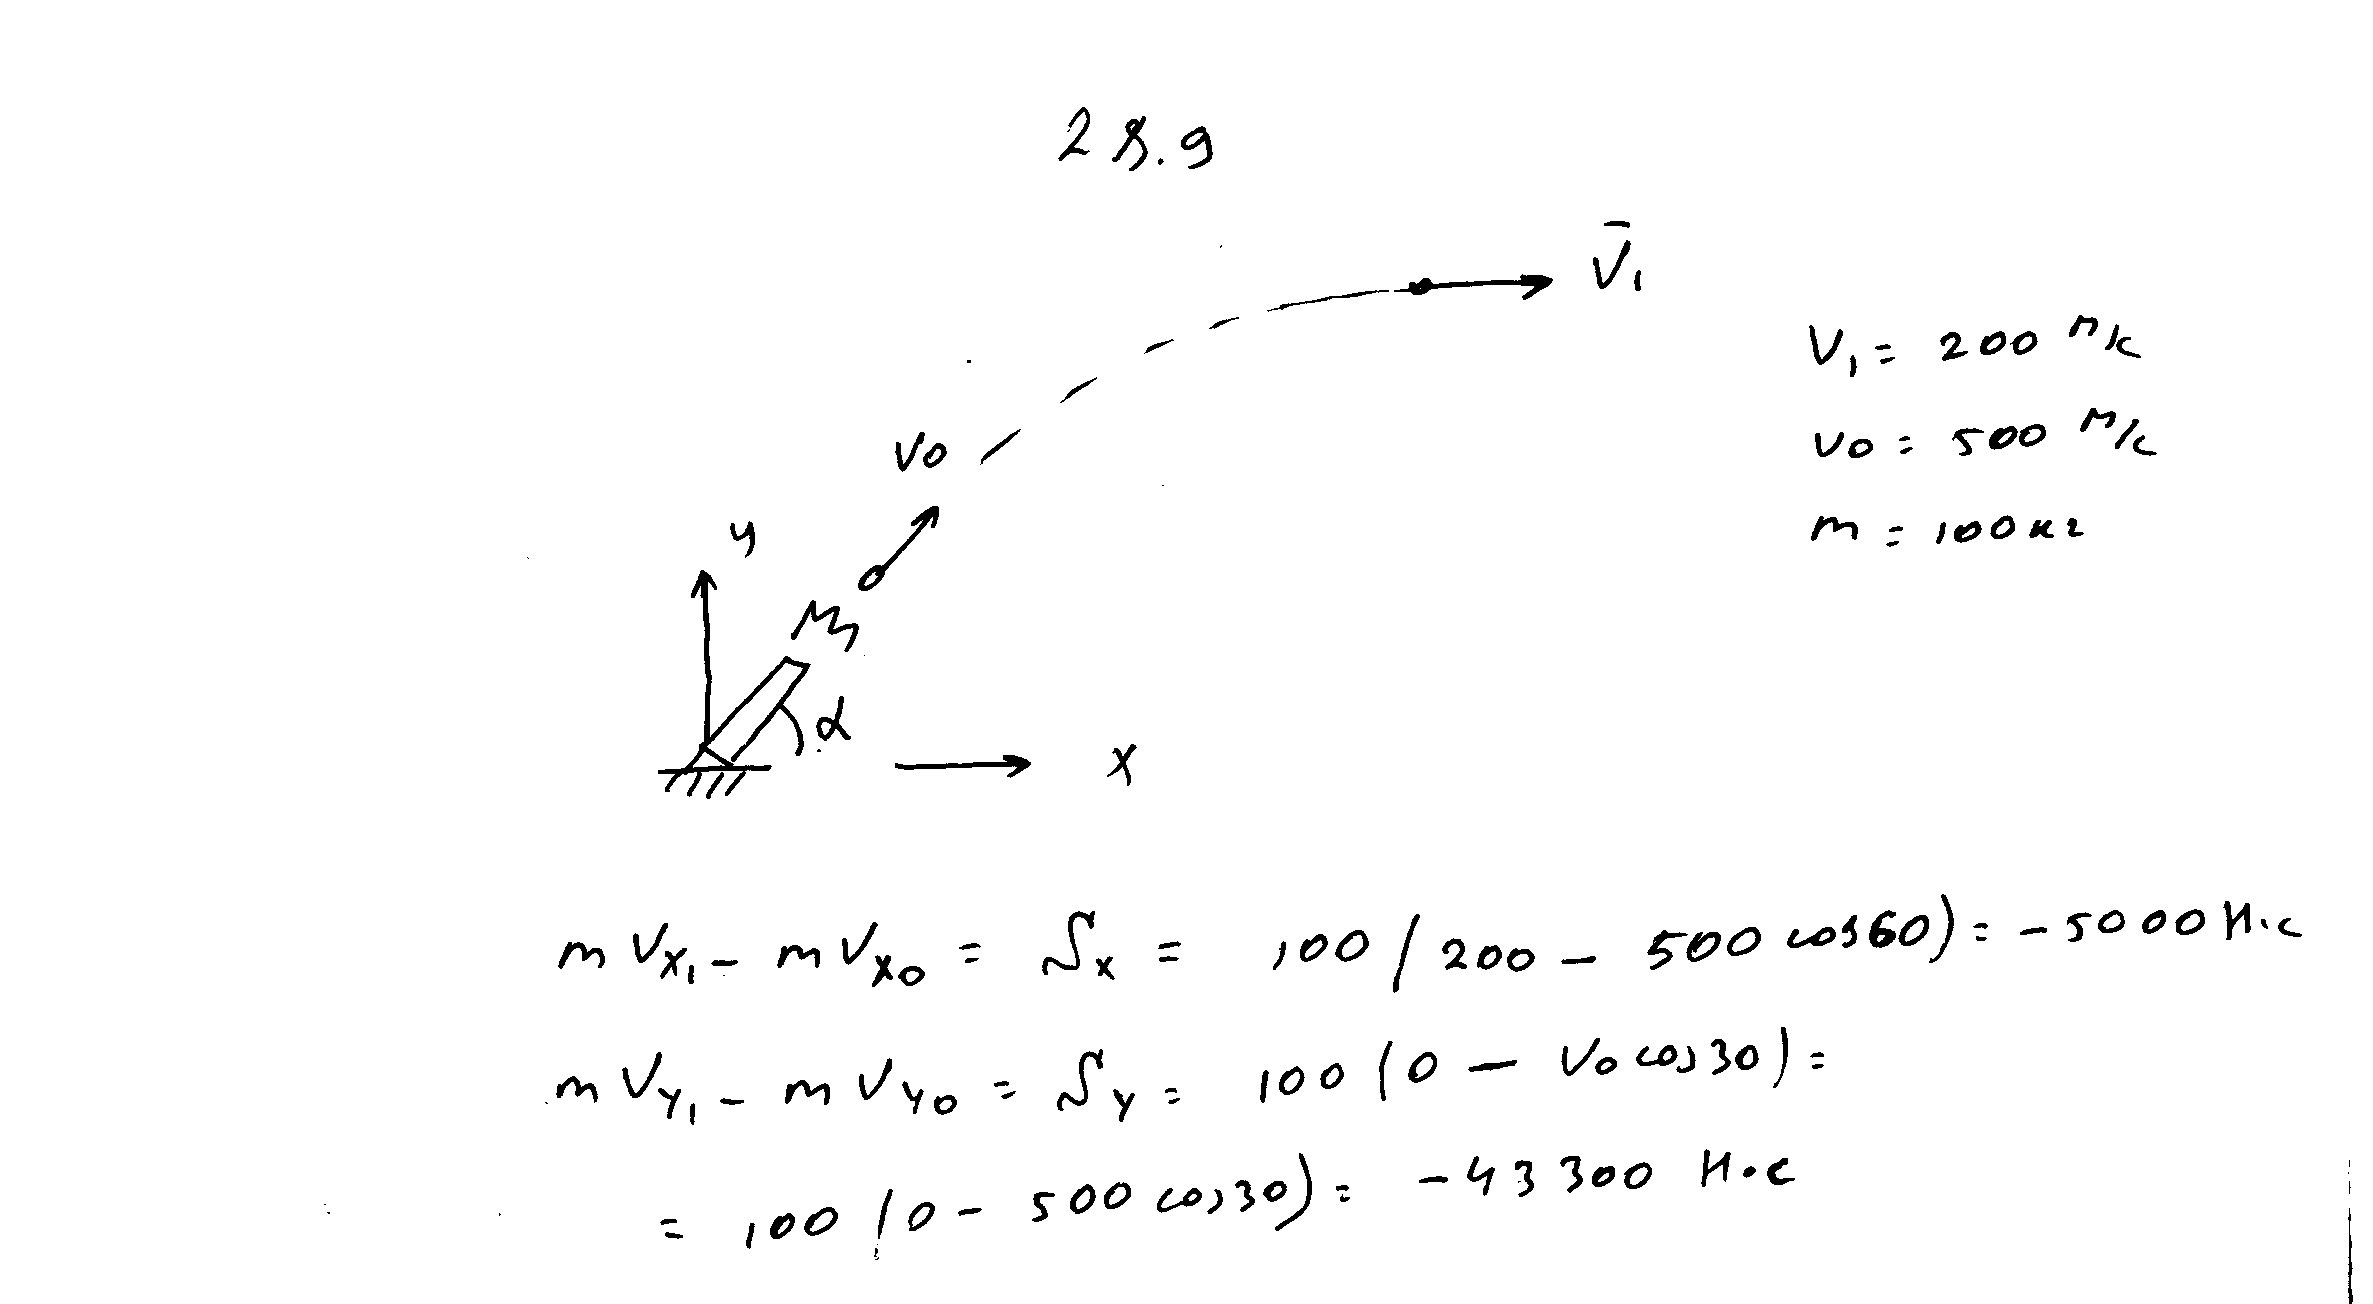 28.9
V̄₁
V₁ = 200 м/с
v₀ = 500 м/с
m = 100 кг
v₀
y
M
α
x
m Vx₁ - m Vx₀ = Sx = 100 (200 - 500 cos60) = -5000 Н·с
m Vy₁ - m Vy₀ = Sy = 100 (0 - V₀ cos30) =
= 100 (0 - 500 cos30) = -43300 Н·с